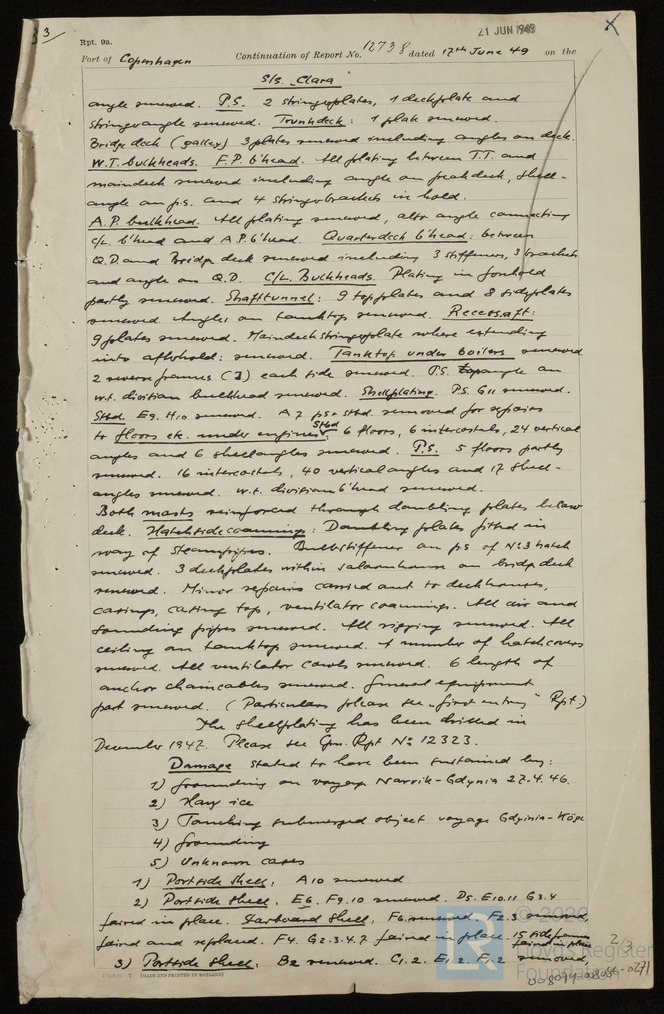 3
21 JUN 1949
Rpt. 9a.
Port of Copenhagen Continuation of Report No. 12738 dated 17th June 49 on the
S/S. Clara
angle renewed. P.S. 2 stringerplates, 1 deckplate and
stringerangle renewed. Trunkdeck: 1 plate renewed.
Bridge deck (galley) 3 plates renewed including angles on deck.
W.T. bulkheads. F.P. b'head. All plating between T.T. and
maindeck renewed including angle on peakdeck, shell-
angle on p.s. and 4 stringerbrackets in hold.
A.P. bulkhead. All plating renewed, also angle connecting
C/L b'head and A.P. b'head. Quarterdeck b'head: between
Q.D and Bridge deck renewed including 3 stiffeners, 3 brackets
and angle on Q.D. C/L. Bulkheads. Plating in forehold
partly renewed. Shafttunnel: 9 topplates and 8 sideplates
renewed. Angles on tanktop renewed. Recessaft:
9 plates renewed. Maindeckstringerplate where extending
into afterhold: renewed. Tanktop under boilers renewed
2 reverse frames (J) each side renewed. P.S. angle on
w.t. division bulkhead renewed. Shellplating. P.S. G11 renewed.
Stbd E9. H10 renewed. A7 ps + stbd. removed for repairs
to floors etc. under engines. Stbd 6 floors, 6 intercostals, 24 vertical
angles and 6 shellangles renewed. P.S. 5 floors partly
renewed. 16 intercostals, 40 vertical angles and 17 shell-
angles renewed. w.t. division b'head renewed.
Both masts reinforced through doubling plates below
deck. Hatchsidecoamings: Doubling plates fitted in
way of steampipes. Bulbstiffener on ps of No 3 hatch
renewed. 3 deckplates within saloonhouse on bridge deck
renewed. Minor repairs carried out to deckhouses,
casings, casing tops, ventilator coamings. All air and
sounding pipes renewed. All rigging renewed. All
ceiling on tanktop renewed. A number of hatchcovers
renewed. All ventilator cowls renewed. 6 length of
anchor chaincables renewed. General equipment
part renewed. (Particulars please see "first entry" Rpt.)
The shellplating has been drilled in
December 1947. Please see Cpn. Rpt No 12323.
Damage stated to have been sustained by:
1) Grounding on voyage Narvik-Gdynia 27.4.46.
2) Heavy ice
3) Touching submerged object voyage Gdynia-Köge
4) Grounding
5) Unknown cases
1) Portside shell: A10 renewed
2) Portside shell: E6. F9.10 renewed. D5. E10.11 G3.4
faired in place. Starboard shell: F6 renewed, F2.3 removed,
faired and replaced. F4. G2.3.4.7 faired in place. 15 sideframes
faired in place
3) Portside shell: B2 renewed. C1.2. E1.2. F1.2 removed,
(MADE AND PRINTED IN ENGLAND)
© 2020
Lloyd's Register
Foundation
2/3